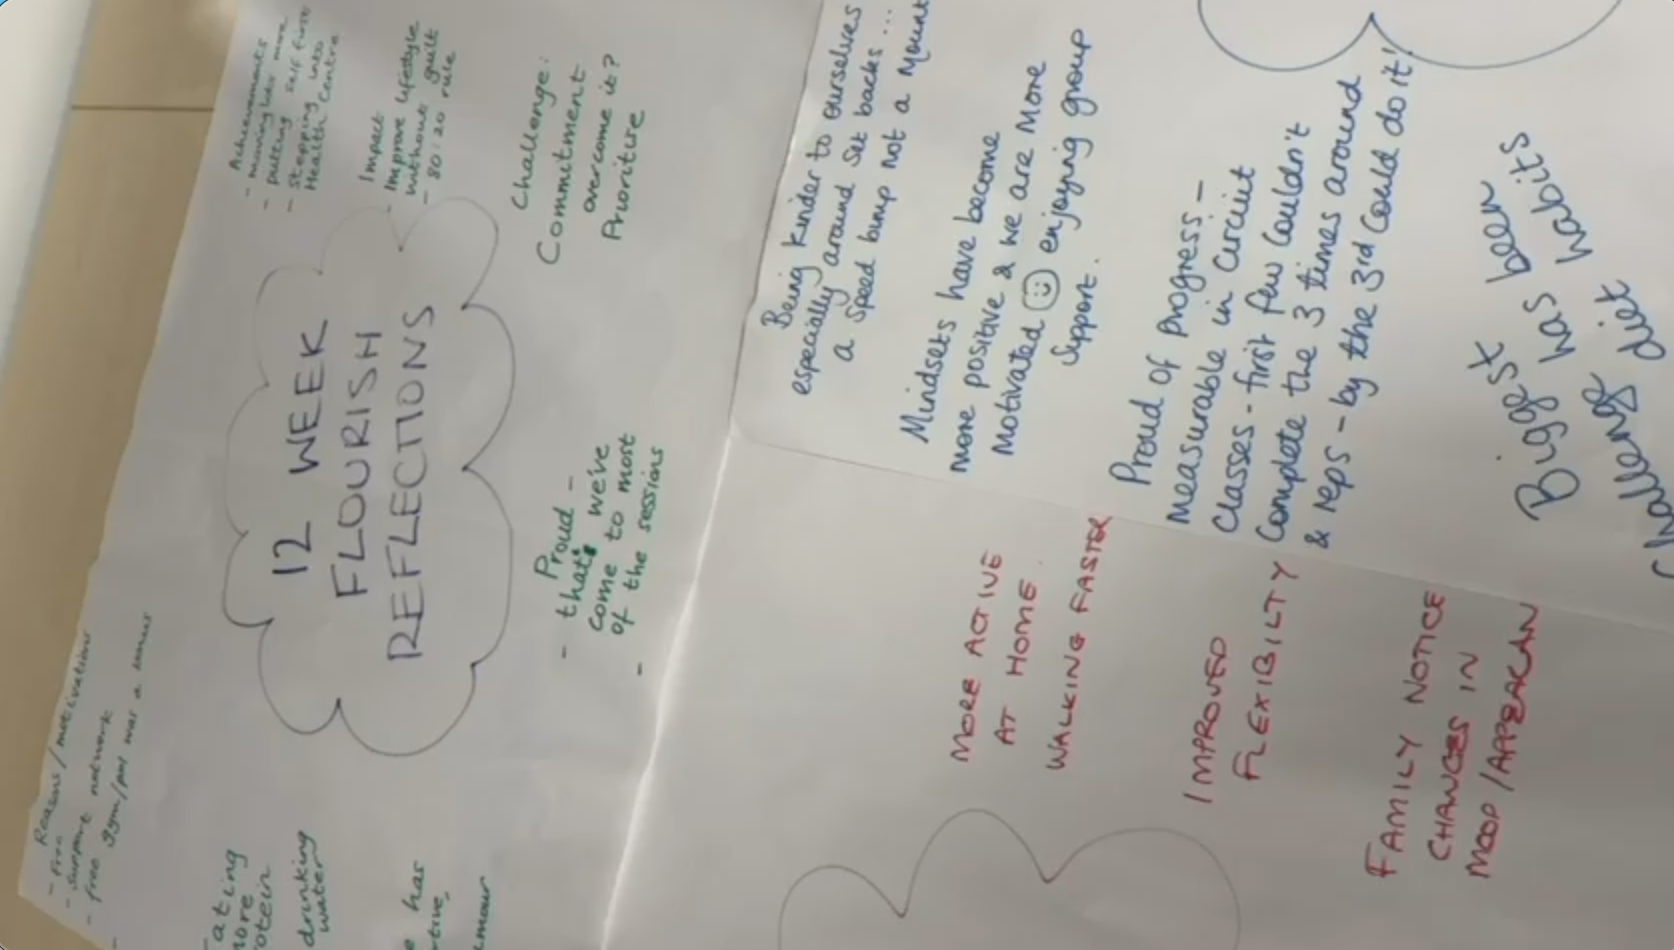 12 WEEK
FLOURISH
REFLECTIONS
Achievements
- moving lots more
- putting self first
- stepping into
Health Centre
Impact
- Improve lifestyle
without guilt
- 80:20 rule
Challenge:
Commitment
overcome it?
Prioritise
Reasons / motivations
- free
- support network
- free gym/pool was a bonus
- Proud -
that's we've
come to most
- of the sessions
ating
more
rotein
drinking
water
has
rtive,
Being kinder to ourselves
especially around set backs...
a speed bump not a Mount
Mindsets have become
more positive & we are More
Motivated ☺ enjoying group
Support.
Proud of progress -
Measurable in Circuit
Classes - first few couldn't
Complete the 3 times around
& reps - by the 3rd Could do it!
Biggest has been
Challenge diet habits
MORE ACTIVE
AT HOME.
WALKING FASTER
IMPROVED
FLEXIBILTY
FAMILY NOTICE
CHANGES IN
MOOD/APPEARAN